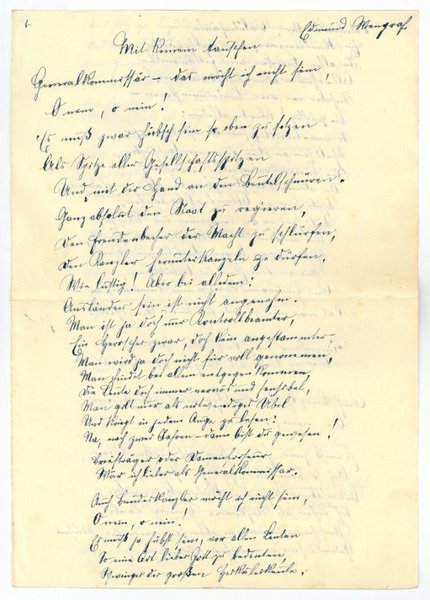 1.
Edmund Wengraf
Mit keinem tauschen
Generalkommissär – das möcht ich nicht sein,
O nein, o nein!
Es muß zwar hübsch sein so oben zu sitzen
Als Spitze aller Gesellschaftsspitzen
Und mit der Hand an den Beutelschnüren.
Ganz absolut den Staat zu regieren,
Den Freudenbecher der Macht zu schlürfen,
Den Kanzler herunterkanzeln zu dürfen,
Wie lustig! Aber bei alldem:
Ausländer sein ist nicht angenehm.
Man ist ja doch nur Kontrollbeamter,
Ein Herrscher zwar, doch kein angestammter,
Man wird ja doch nicht für voll genommen,
Man findet bei allem Entgegenkommen,
Die Leute doch immer nervös und sensibel,
Man gilt nur als notwendiges Übel
Und kriegt in jedem Auge zu lesen:
Na, noch zwei Jahre – dann bist du gewesen!
Briefträger oder Damenfriseur
Wär ich lieber als Generalkommissär.
Auch Bundeskanzler möcht ich nicht sein,
O nein, o nein!
Es muß ja hübsch sein, vor allen Leuten
So eine Art lieber Gott zu bedeuten,
Schwinger der großen Herkuleskeule.